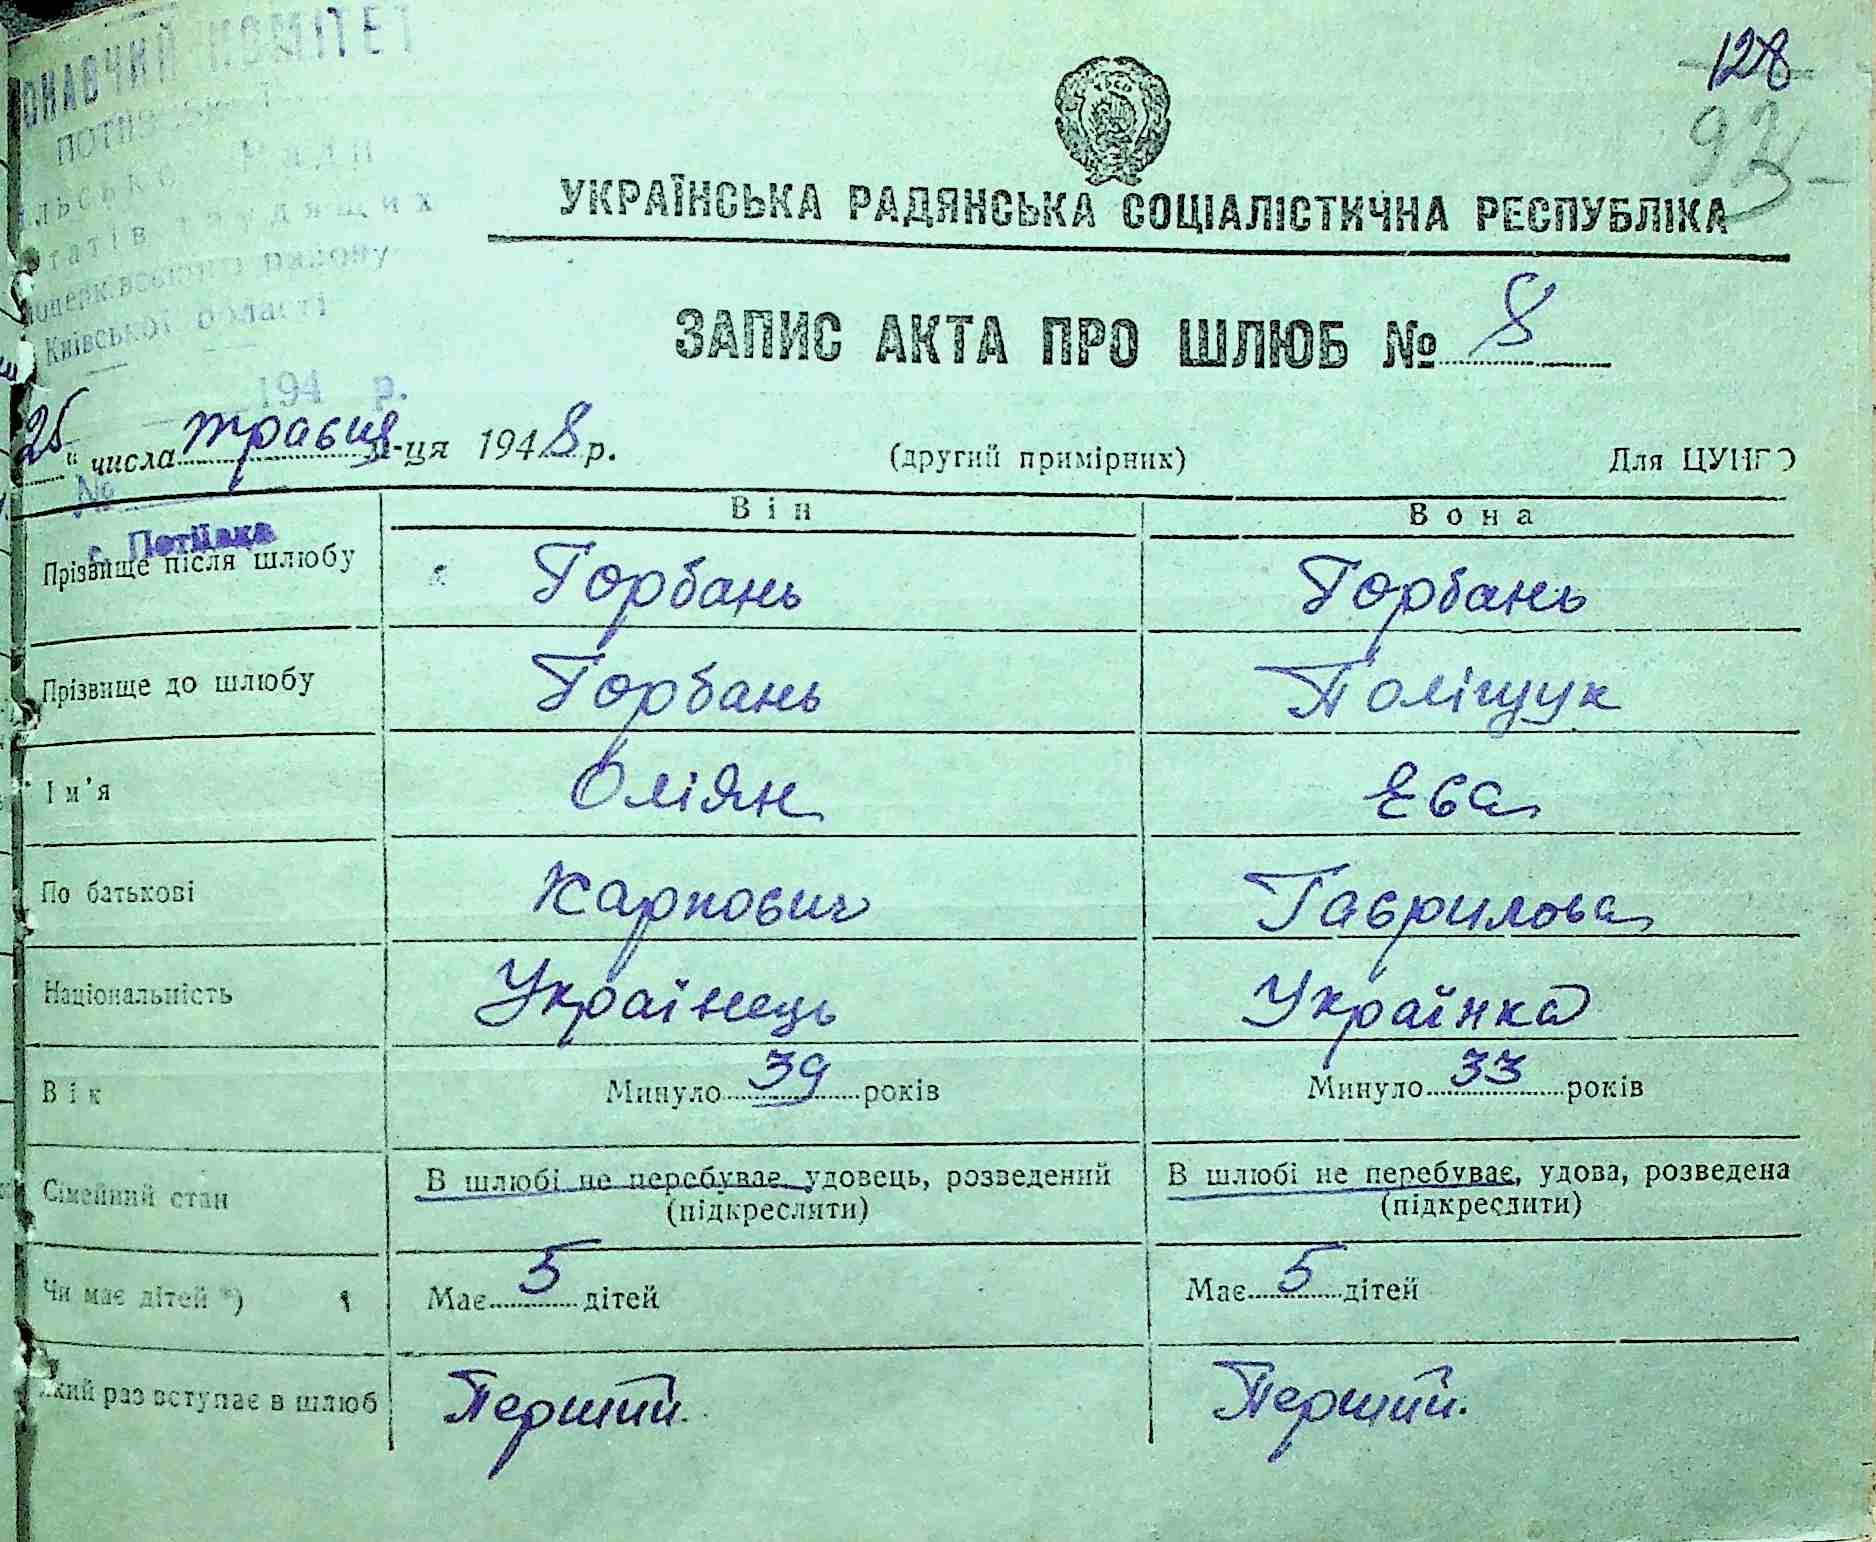 128
93
ОНАВЧИЙ КОМІТЕТ
Ради
Київської області
194 р.
УКРАЇНСЬКА РАДЯНСЬКА СОЦІАЛІСТИЧНА РЕСПУБЛІКА
ЗАПИС АКТА ПРО ШЛЮБ № 8
25 " числа травня м-ця 1948 р. (другий примірник) Для ЦУНГО
№
с. Потіївка
Він Вона
Прізвище після шлюбу Горбань Горбань
Прізвище до шлюбу Горбань Поліщук
Ім'я Оліян Ева
По батькові Карпович Гаврилова
Національність Украінець Українка
Вік Минуло 39 років Минуло 33 років
Сімейний стан В шлюбі не перебуває, удовець, розведений В шлюбі не перебуває, удова, розведена
(підкреслити) (підкреслити)
Чи має дітей *) Має 5 дітей Має 5 дітей
який раз вступає в шлюб Перший. Перший.